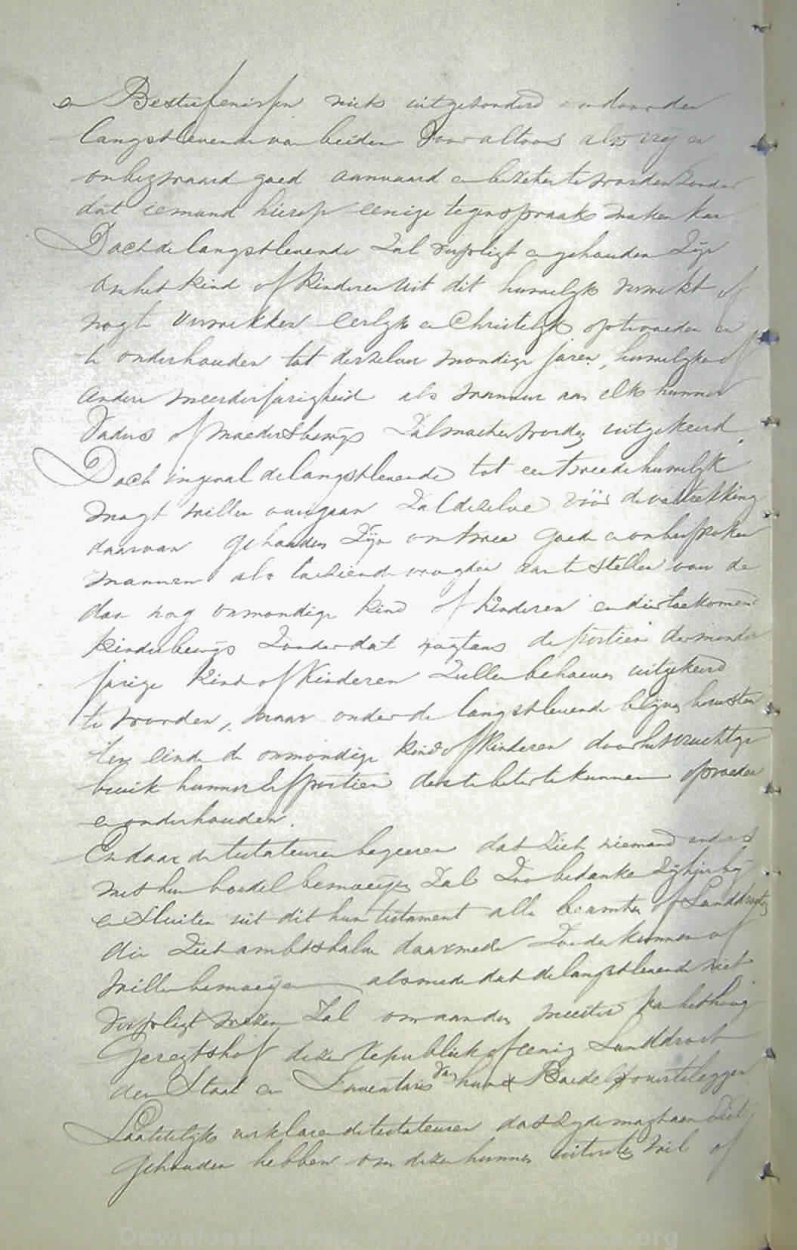 en Besterfenisfen niets uitgesonderd en door den
langstlevende van beiden voor altoos als vrij en
onbezwaard goed aanvaard en bezeten te worden zonder
dat iemand hierop eenige tegenspraak maken kan
Doch de langstlevende zal verpligt en gehouden zijn
om het kind of kinderen uit dit huwelijk verwekt of
nogte verwekken eerlijk en Christelijk optevoeden en
te onderhouden tot derzelver mondige jaren, huwelyken of
andere meerderjarigheid als wanneer aan elk hunner
Vaders of moeders bewijs zal moeten worden uitgekeerd.
Doch ingeval de langstlevende tot een tweede huwelijk
mogt willen overgaan zal dezelve vóór de voltrekking
daarvan gehouden zijn om twee goede en onbesproken
mannen als toeziende voogden aan te stellen van de
dan nog onmondige kind of kinderen en die toekomend
kinderbewijs zonder dat nogtans de portien der minder
jarige kind of kinderen zullen behoeven uitgekeerd
te worden, maar onder de langstlevende blijven berusten
ten einde de onmondige kind of kinderen door het vruchtge
bruik hunner erfportien des te beter te kunnen opvoeden
en onderhouden.
En daar de testateuren begeeren dat zich niemand anders
met hun boedel bemoeijen zal Zoo bedanken zij hierbij
en sluiten uit dit hun testament alle beamten of Landdrosten
die zich ambtshalve daarmede zouden kunnen of
willen bemoeijen alsmede dat de langstlevende niet
verpligt wezen zal om aan den meester van het hoog
Geregtshof dezer Republiek of eenig Landdrost
den Staat en Inventaris van hun Boedel overteleggen
Laatstelijk verklaren de testateuren dat zy de magt aan zich
gehouden hebben om deze hunnen uitersten wil of